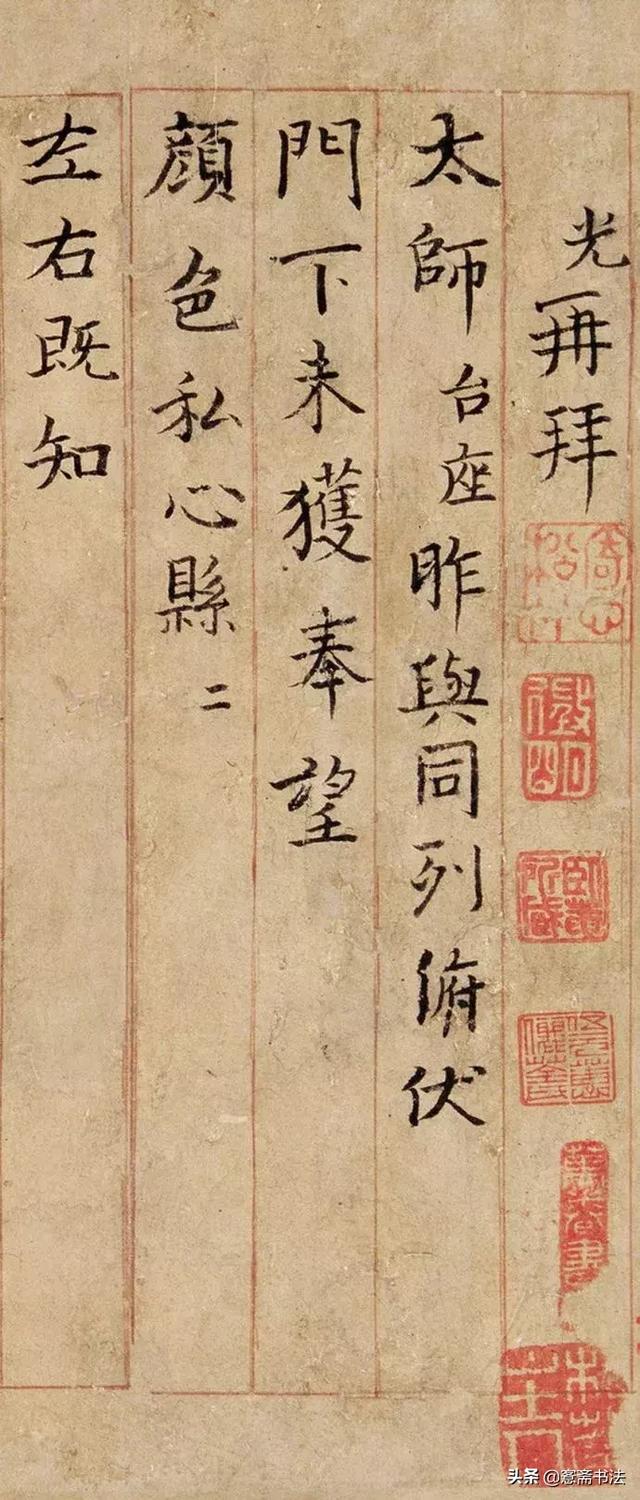 光再拜
太師台座昨與同列俯伏
門下未獲奉望
顏色私心縣〻
左右既知
头条 @窓斋书法